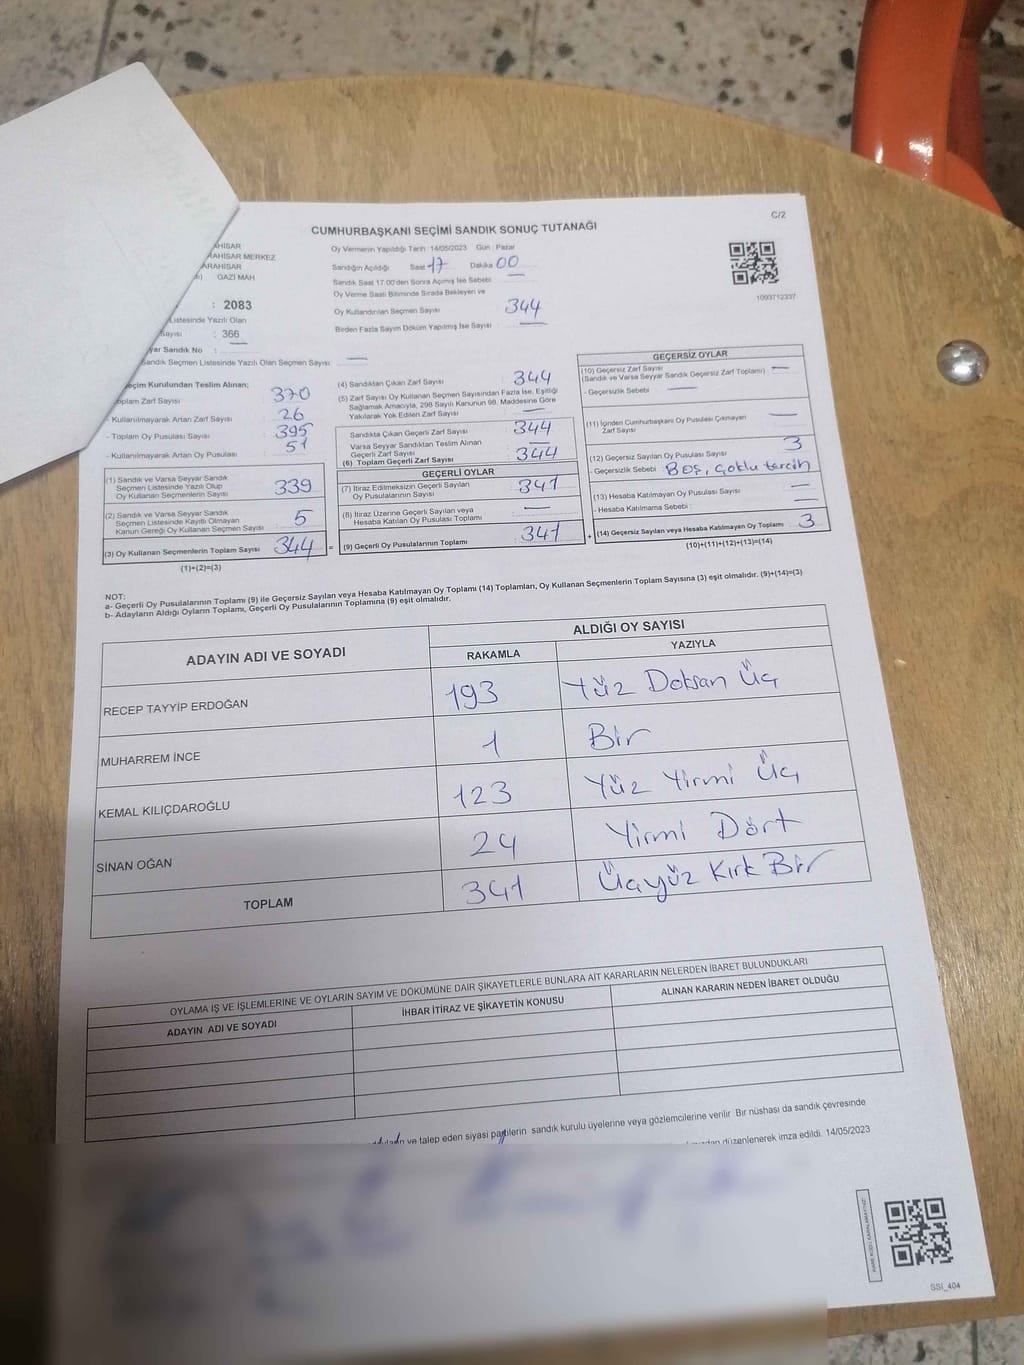 C/2
CUMHURBAŞKANI SEÇİMİ SANDIK SONUÇ TUTANAĞI
AHİSAR
RAHİSAR MERKEZ
ARAHİSAR
GAZI MAH
: 2083
Listesinde Yazılı Olan
Sayısı : 366
yar Sandık No : —
Sandık Seçmen Listesinde Yazılı Olan Seçmen Sayısı : —
Oy Vermenin Yapıldığı Tarih :14/05/2023 Gün : Pazar
Sandığın Açıldığı Saat 17 Dakika 00
Sandık Saat 17.00'den Sonra Açılmış İse Sebebi : —
Oy Verme Saati Bitiminde Sırada Bekleyen ve
Oy Kullandırılan Seçmen Sayısı : 344
Birden Fazla Sayım Döküm Yapılmış İse Sayısı : —
1093712337
eçim Kurulundan Teslim Alınan;
oplam Zarf Sayısı 370
- Kullanılmayarak Artan Zarf Sayısı 26
- Toplam Oy Pusulası Sayısı 395
- Kullanılmayarak Artan Oy Pusulası 51
(1) Sandık ve Varsa Seyyar Sandık
Seçmen Listesinde Yazılı Olup
Oy Kullanan Seçmenlerin Sayısı : 339
(2) Sandık ve Varsa Seyyar Sandık
Seçmen Listesinde Kayıtlı Olmayan
Kanun Gereği Oy Kullanan Seçmen Sayısı : 5
(3) Oy Kullanan Seçmenlerin Toplam Sayısı : 344 =
(1)+(2)=(3)
(4) Sandıktan Çıkan Zarf Sayısı : 344
(5) Zarf Sayısı Oy Kullanan Seçmen Sayısından Fazla İse, Eşitliği
Sağlamak Amacıyla, 298 Sayılı Kanunun 98. Maddesine Göre
Yakılarak Yok Edilen Zarf Sayısı : —
Sandıkta Çıkan Geçerli Zarf Sayısı : 344
Varsa Seyyar Sandıktan Teslim Alınan
Geçerli Zarf Sayısı : —
(6) Toplam Geçerli Zarf Sayısı : 344
GEÇERLİ OYLAR
(7) İtiraz Edilmeksizin Geçerli Sayılan
Oy Pusulalarının Sayısı : 341
(8) İtiraz Üzerine Geçerli Sayılan veya
Hesaba Katılan Oy Pusulası Toplamı : —
(9) Geçerli Oy Pusulalarının Toplamı : 341 +
GEÇERSİZ OYLAR
(10) Geçersiz Zarf Sayısı
(Sandık ve Varsa Seyyar Sandık Geçersiz Zarf Toplamı) : —
- Geçersizlik Sebebi : —
(11) İçinden Cumhurbaşkanı Oy Pusulası Çıkmayan
Zarf Sayısı : —
(12) Geçersiz Sayılan Oy Pusulası Sayısı : 3
- Geçersizlik Sebebi : Boş, çoklu tercih
(13) Hesaba Katılmayan Oy Pusulası Sayısı : —
- Hesaba Katılmama Sebebi : —
(14) Geçersiz Sayılan veya Hesaba Katılmayan Oy Toplamı : 3
(10)+(11)+(12)+(13)=(14)
NOT:
a- Geçerli Oy Pusulalarının Toplamı (9) ile Geçersiz Sayılan veya Hesaba Katılmayan Oy Toplamı (14) Toplamları, Oy Kullanan Seçmenlerin Toplam Sayısına (3) eşit olmalıdır. (9)+(14)=(3)
b- Adayların Aldığı Oyların Toplamı, Geçerli Oy Pusulalarının Toplamına (9) eşit olmalıdır.
ADAYIN ADI VE SOYADI
ALDIĞI OY SAYISI
RAKAMLA YAZIYLA
RECEP TAYYİP ERDOĞAN 193 Yüz Doksan Üç
MUHARREM İNCE 1 Bir
KEMAL KILIÇDAROĞLU 123 Yüz Yirmi Üç
SİNAN OĞAN 24 Yirmi Dört
TOPLAM 341 Üçyüz Kırk Bir
OYLAMA İŞ VE İŞLEMLERİNE VE OYLARIN SAYIM VE DÖKÜMÜNE DAİR ŞİKAYETLERLE BUNLARA AİT KARARLARIN NELERDEN İBARET BULUNDUKLARI
ADAYIN ADI VE SOYADI İHBAR İTİRAZ VE ŞİKAYETİN KONUSU ALINAN KARARIN NEDEN İBARET OLDUĞU
ve talep eden siyasi partilerin sandık kurulu üyelerine veya gözlemcilerine verilir Bir nüshası da sandık çevresinde
düzenlenerek imza edildi. 14/05/2023
SSI_404